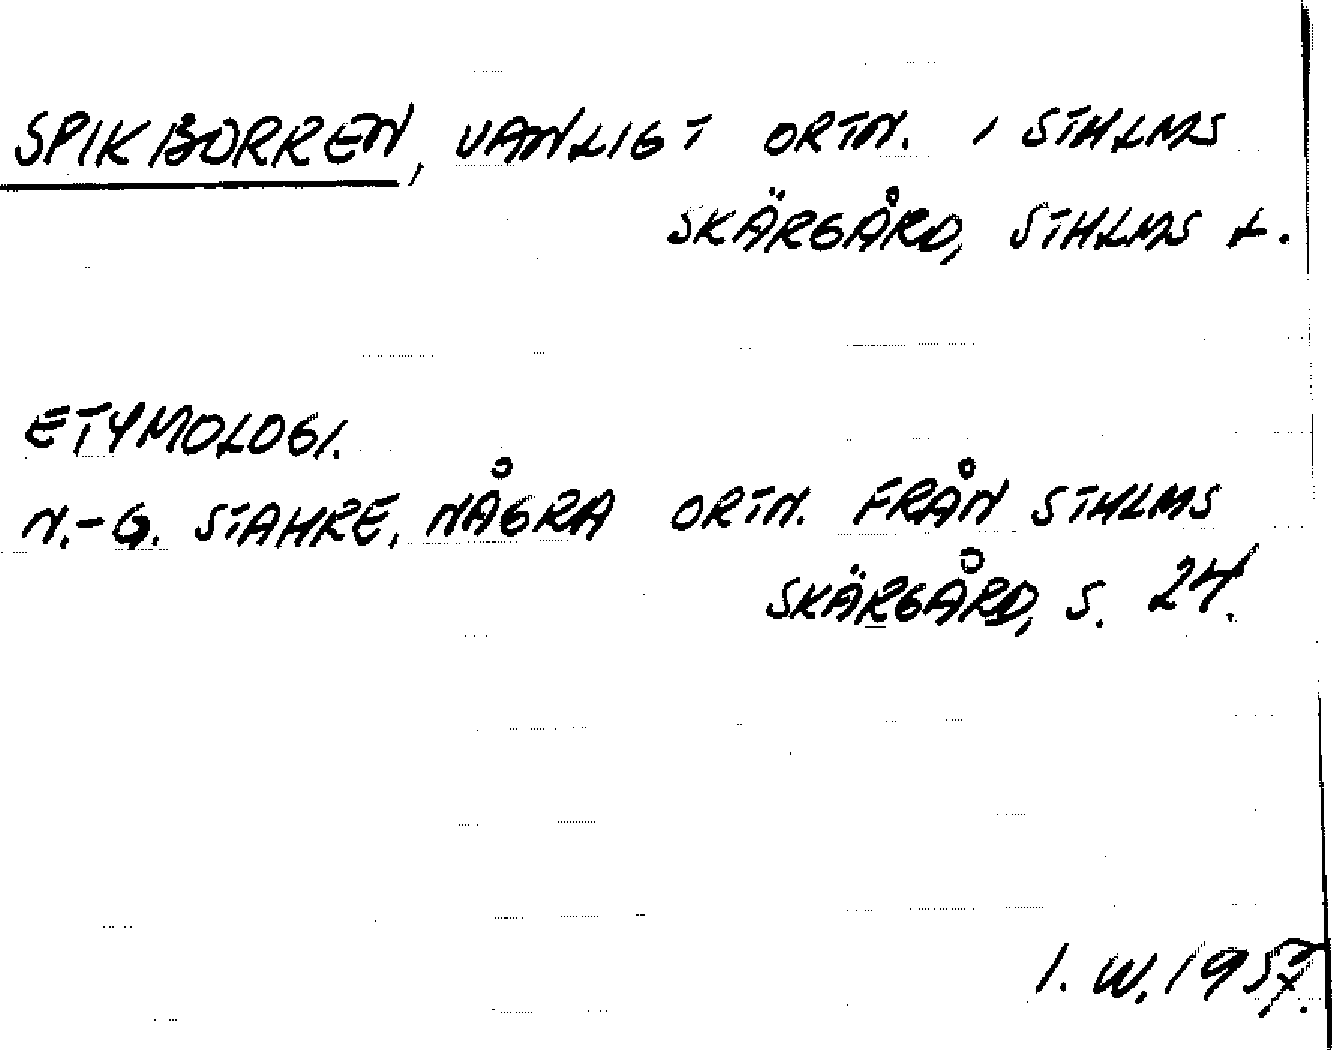 SPIKBORREN, VANLIGT ORTN. I STHLMS
SKÄRGÅRD, STHLMS L.
ETYMOLOGI.
N.-G. STAHRE, NÅGRA ORTN. FRÅN STHLMS
SKÄRGÅRD, S. 24.
I. W. 1957.